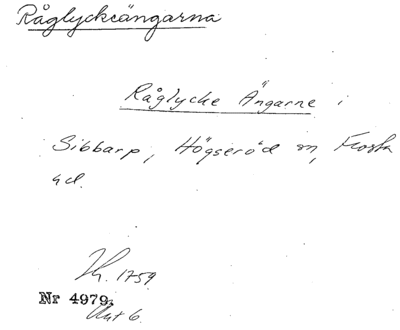 Råglyckeängarna
Råglycke Ängarne i
Sibbarp, Högseröd sn, Frosta
hd.
Lh. 1759
Nr 4979.
Akt 6.